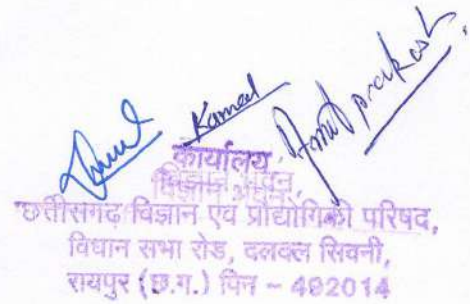 Kamal
Amit prakash
कार्यालय
विज्ञान भवन,
छत्तीसगढ़ विज्ञान एवं प्रौद्योगिकी परिषद,
विधान सभा रोड, दलदल सिवनी,
रायपुर (छ.ग.) पिन – 492014